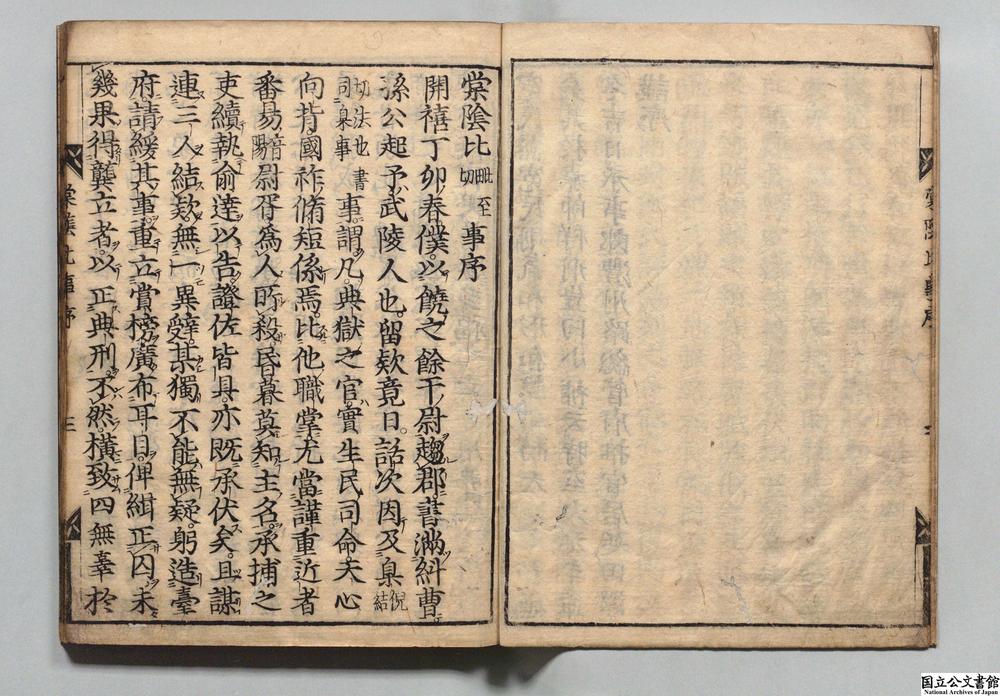 棠陰比毗至切事序
開禧丁卯春僕以饒之餘干尉趨郡書滿糾曹
孫公起予武陵人也留欵竟日話次因及臬倪結
切法也書司臬事事謂凡典獄之官實生民司命天心
向背國祚脩短係焉比他職掌尤當謹重近者
番易音陽尉胥爲人所殺昏暮莫知主名承捕之
吏續執俞達以告證佐皆具亦既承伏矣且謀
連三人結欵無一異辭某獨不能無疑躬造臺
府請緩其事重立賞榜廣布耳目俾緝正囚未
幾果得龔立者以正典刑不然橫致四無辜於
棠陰比事序
三
国立公文書館
National Archives of Japan